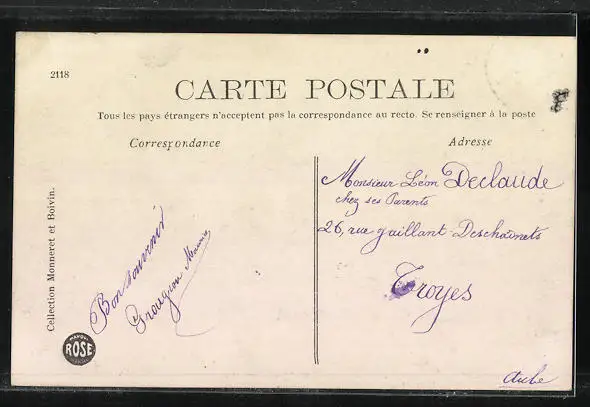 2118
CARTE POSTALE
Tous les pays étrangers n'acceptent pas la correspondance au recto. Se renseigner à la poste
Correspondance
Adresse
Collection Monneret et Boivin.
Bon souvenir
Monsieur Léon Declaude
chez ses Parents
26, rue gaillant Deschainets
Troyes
Aube
ROSE